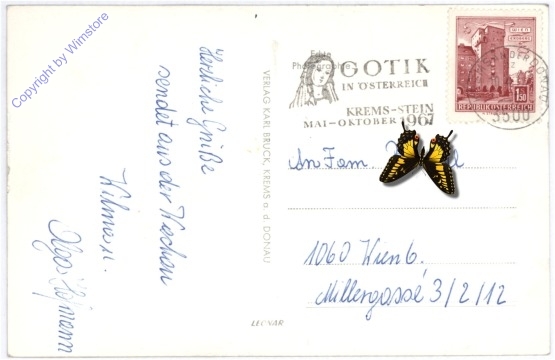 Copyright by Wimstore
Herzliche Grüße
sendet aus der Wachau
Olga Hofmann
VERLAG KARL BRUCK, KREMS a. d. DONAU
Echte
Photographie
GOTIK
IN ÖSTERREICH
KREMS-STEIN
MAI-OKTOBER 1967
1.50
REPUBLIK ÖSTERREICH
DONAU
3500
An Fam.
1060 Wien 6.
Millergasse 3/2/12